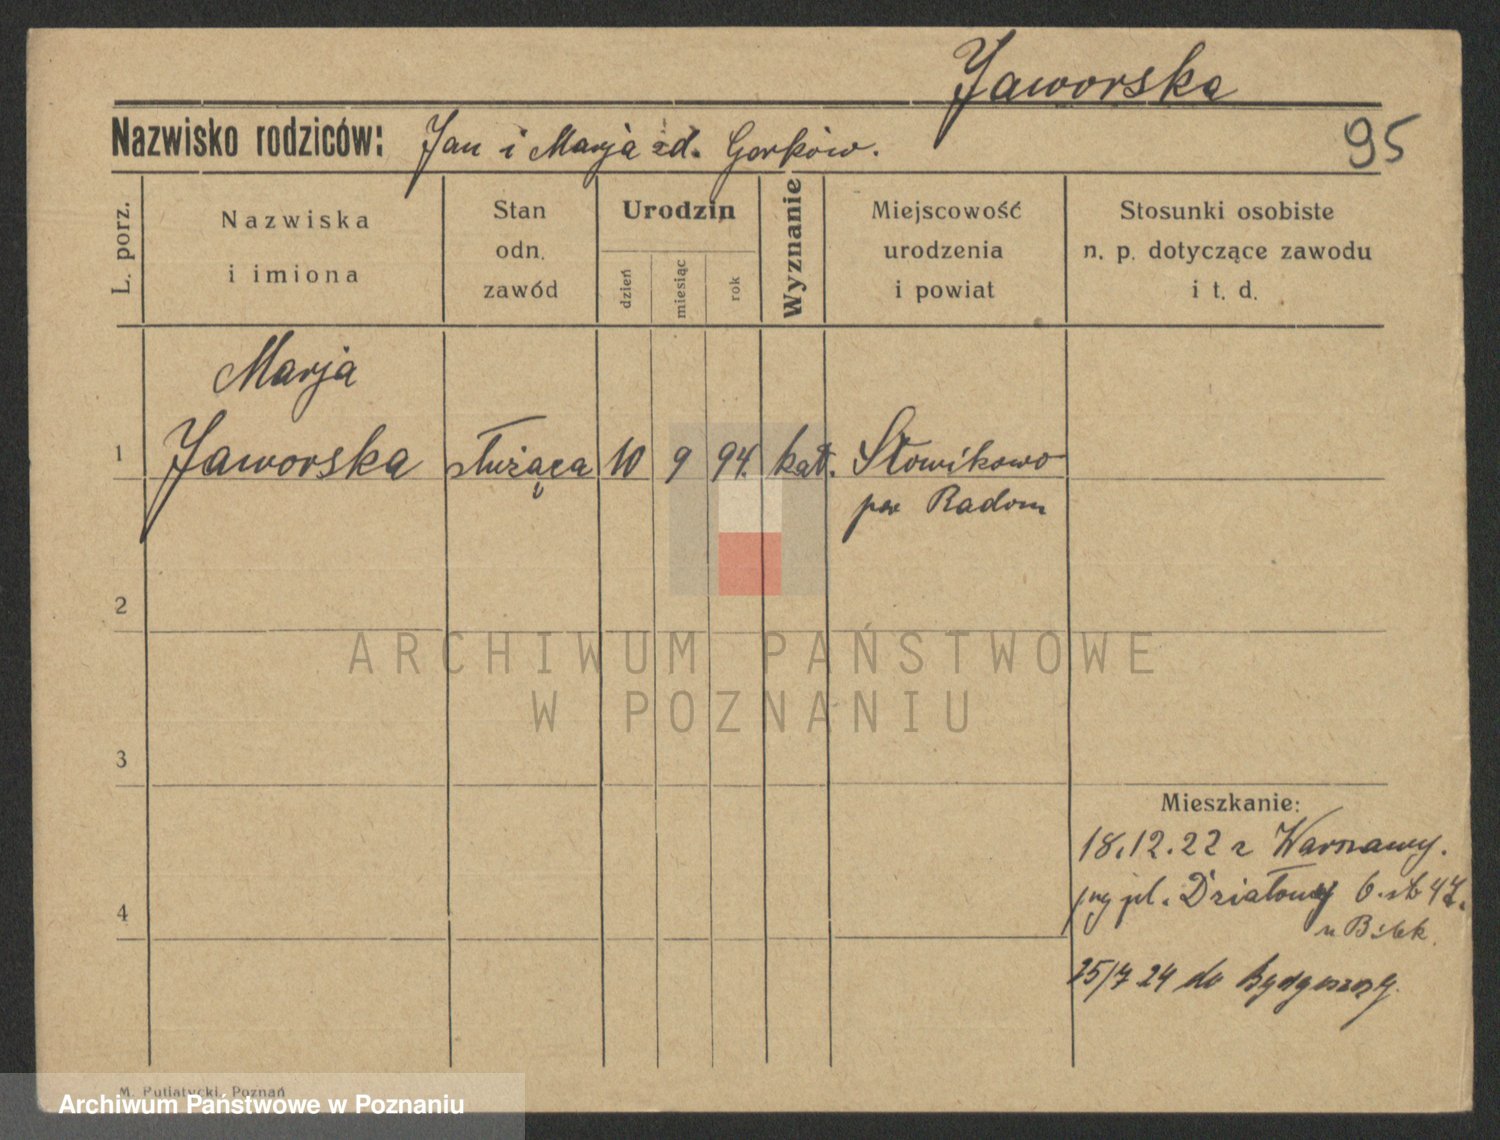 Jaworska
Nazwisko rodziców: Jan i Marja zd. Gorków.
95
L. porz.
Nazwiska
i imiona
Stan
odn.
zawód
Urodzin
dzień
miesiąc
rok
Wyznanie
Miejscowość
urodzenia
i powiat
Stosunki osobiste
n. p. dotyczące zawodu
i t. d.
Marja
1 Jaworska służąca 10 9 94. kat. Słowikowo
pow Radom
2
ARCHIWUM PAŃSTWOWE
W POZNANIU
3
Mieszkanie:
18.12.22 z Warszawy.
pl. Działowy 6.
4
u
25/7 24 do Bydgoszczy.
M. Putiatycki, Poznań
Archiwum Państwowe w Poznaniu